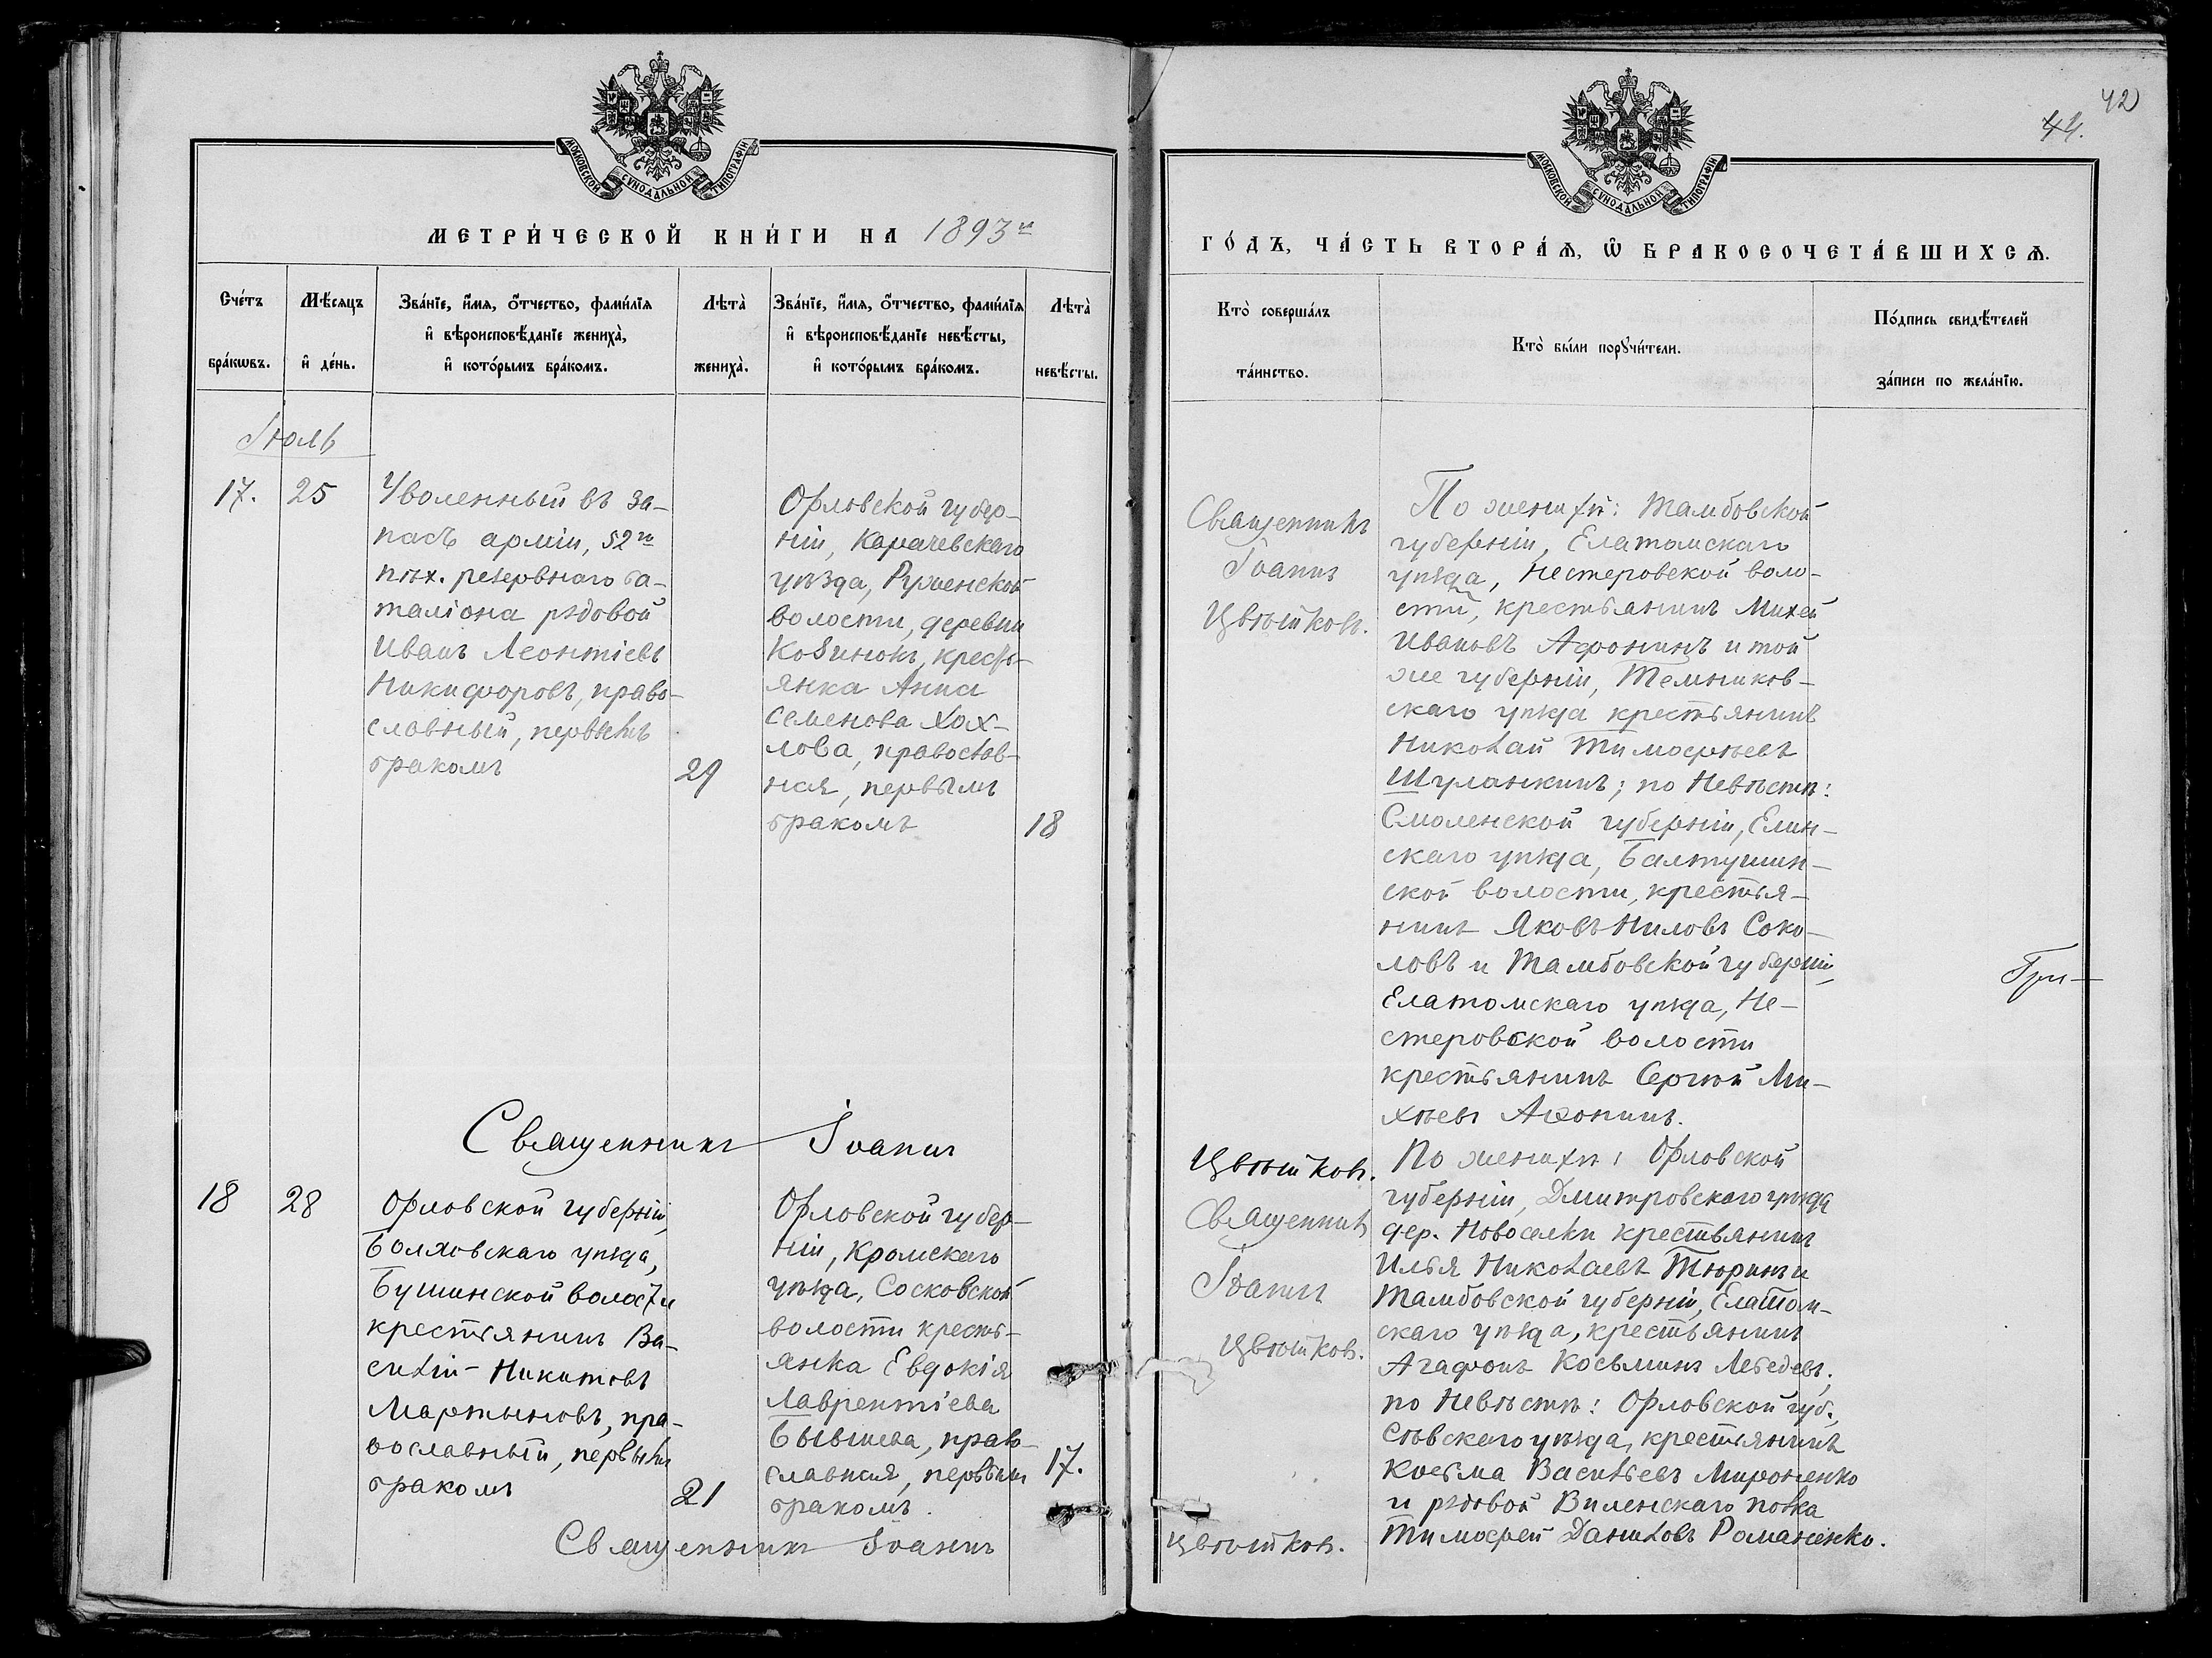 МОСКОВСКОЙ СѴНОДАЛЬНОЙ ТИПОГРАФІИ
МЕТРИ́ЧЕСКОЙ КНИ́ГИ НА 1893го
Сче́тъ бра́кѡвъ.
Мѣ́сяцъ и҆ де́нь.
Зва́нїе, и҆́мя, ѻ҆́тчество, фами́лїя
и҆ вѣроисповѣ́данїе жениха̀,
и҆ кото́рымъ бра́комъ.
Лѣта̀ жениха̀.
Зва́нїе, и҆́мя, ѻ҆́тчество, фами́лїя
и҆ вѣроисповѣ́данїе невѣ́сты,
и҆ кото́рымъ бра́комъ.
Лѣта̀ невѣ́сты.
Іюль
17. 25
Уволенный въ за-
пасъ арміи, 52го
пѣх. резервнаго ба-
таліона рядовой
Иванъ Леонтіевъ
Никифоровъ, право-
славный, первымъ
бракомъ
29
Орловской губер-
ніи, Карачевскаго
уѣзда, Руженской
волости, деревни
крестъ-
янка Анна
Семенова Хох-
лова, православ-
ная, первымъ
бракомъ
18
Священникъ Іоаннъ
18 28
Орловской губерніи,
Болховскаго уѣзда,
волости
крестьянинъ Ва-
силій Никитовъ
Мартыновъ, пра-
вославный, первымъ
бракомъ
21
Орловской губер-
ніи, Кромскаго
уѣзда, Сосковской
волости кресть-
янка Евдокія
Лаврентіева
Бывшева, право-
славная, первымъ
бракомъ.
17.
Священникъ Іоаннъ
МОСКОВСКОЙ СѴНОДАЛЬНОЙ ТИПОГРАФІИ
42
44.
ГО́ДЪ, ЧА́СТЬ ВТОРА́Ѧ, Ѡ҆ БРАКОСОЧЕТА́ВШИХСѦ.
Кто̀ соверша́лъ
та́инство.
Кто̀ бы́ли порꙋчи́тели.
По́дпись свидѣ́телей
за́писи по жела́нїю.
Священникъ
Іоаннъ
Цвѣтковъ.
По женихѣ: Тамбовской
губерніи, Елатомскаго
уѣзда, Нестеровской воло-
сти, крестьянинъ Михей
Ивановъ Афонинъ и той
же губерніи, Темников-
скаго уѣзда крестьянинъ
Николай Тимофѣевъ
Шуланкинъ; по Невѣстѣ:
Смоленской губерніи, Елин-
скаго уѣзда, Балтушин-
ской волости, крестья-
нинъ Яковъ Ниловъ Соко-
ловъ и Тамбовской губерніи,
Елатомскаго уѣзда, Не-
стеровской волости
крестьянинъ Сергѣй Ми-
хѣевъ Афонинъ.
Гри-
Цвѣтковъ.
Священникъ
Іоаннъ
Цвѣтковъ.
По женихѣ: Орловской
губерніи, Дмитровскаго уѣзда
дер. Новоселки крестьянинъ
Илья Николаевъ Тюринъ и
Тамбовской губерніи, Елатом-
скаго уѣзда, крестьянинъ
Агафонъ Косьминъ Лебедевъ;
по Невѣстѣ: Орловской губ.,
Сѣвскаго уѣзда, крестьянинъ
Косьма Васильевъ Мироненко
и рядовой Виленскаго полка
Тимофей Даниловъ Романенко.
Цвѣтковъ.